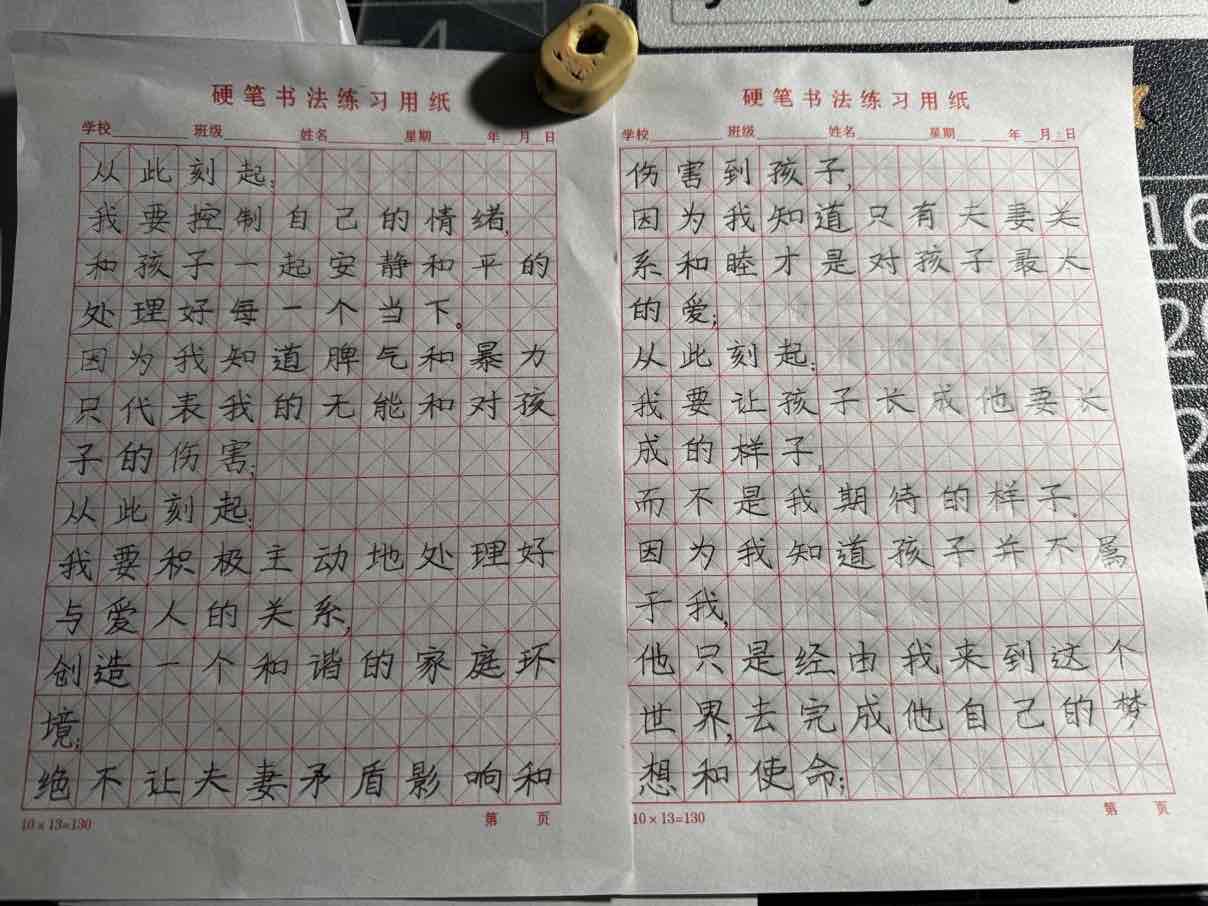 硬笔书法练习用纸
学校 班级 姓名 星期 年 月 日
从此刻起:
我要控制自己的情绪,
和孩子一起安静和平的
处理好每一个当下。
因为我知道脾气和暴力
只代表我的无能和对孩
子的伤害;
从此刻起:
我要积极主动地处理好
与爱人的关系,
创造一个和谐的家庭环
境;
绝不让夫妻矛盾影响和
10×13=130 第 页
硬笔书法练习用纸
学校 班级 姓名 星期 年 月 日
伤害到孩子,
因为我知道只有夫妻关
系和睦才是对孩子最大
的爱;
从此刻起:
我要让孩子长成他要长
成的样子,
而不是我期待的样子。
因为我知道孩子并不属
于我,
他只是经由我来到这个
世界,去完成他自己的梦
想和使命;
10×13=130 第 页
16